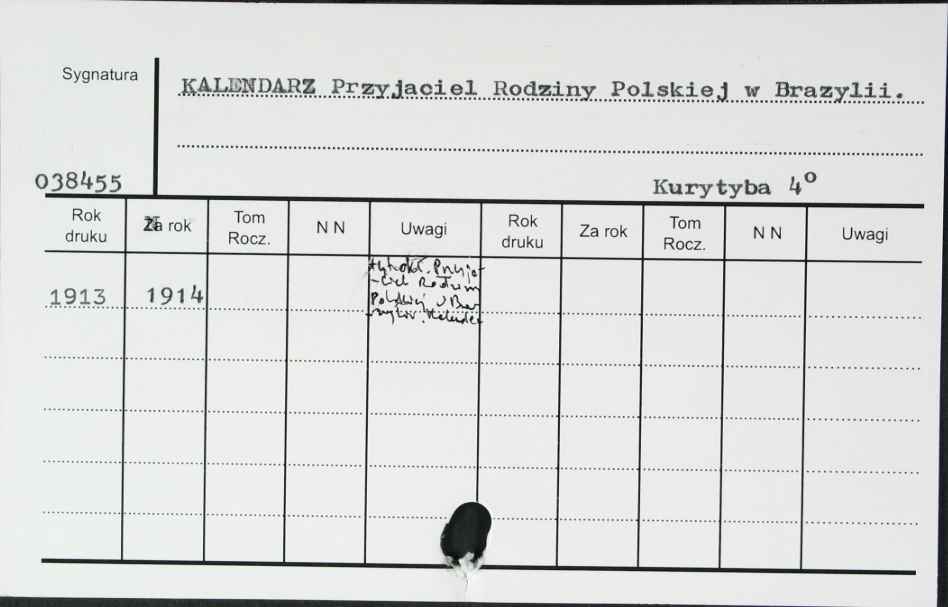 Sygnatura
KALENDARZ Przyjaciel Rodziny Polskiej w Brazylii.
038455
Kurytyba 4°
Rok druku Za rok Tom Rocz. N N Uwagi Rok druku Za rok Tom Rocz. N N Uwagi
1913 1914
tyt. okł. Przyja-
-ciel Rodziny
Polskiej w Bra-